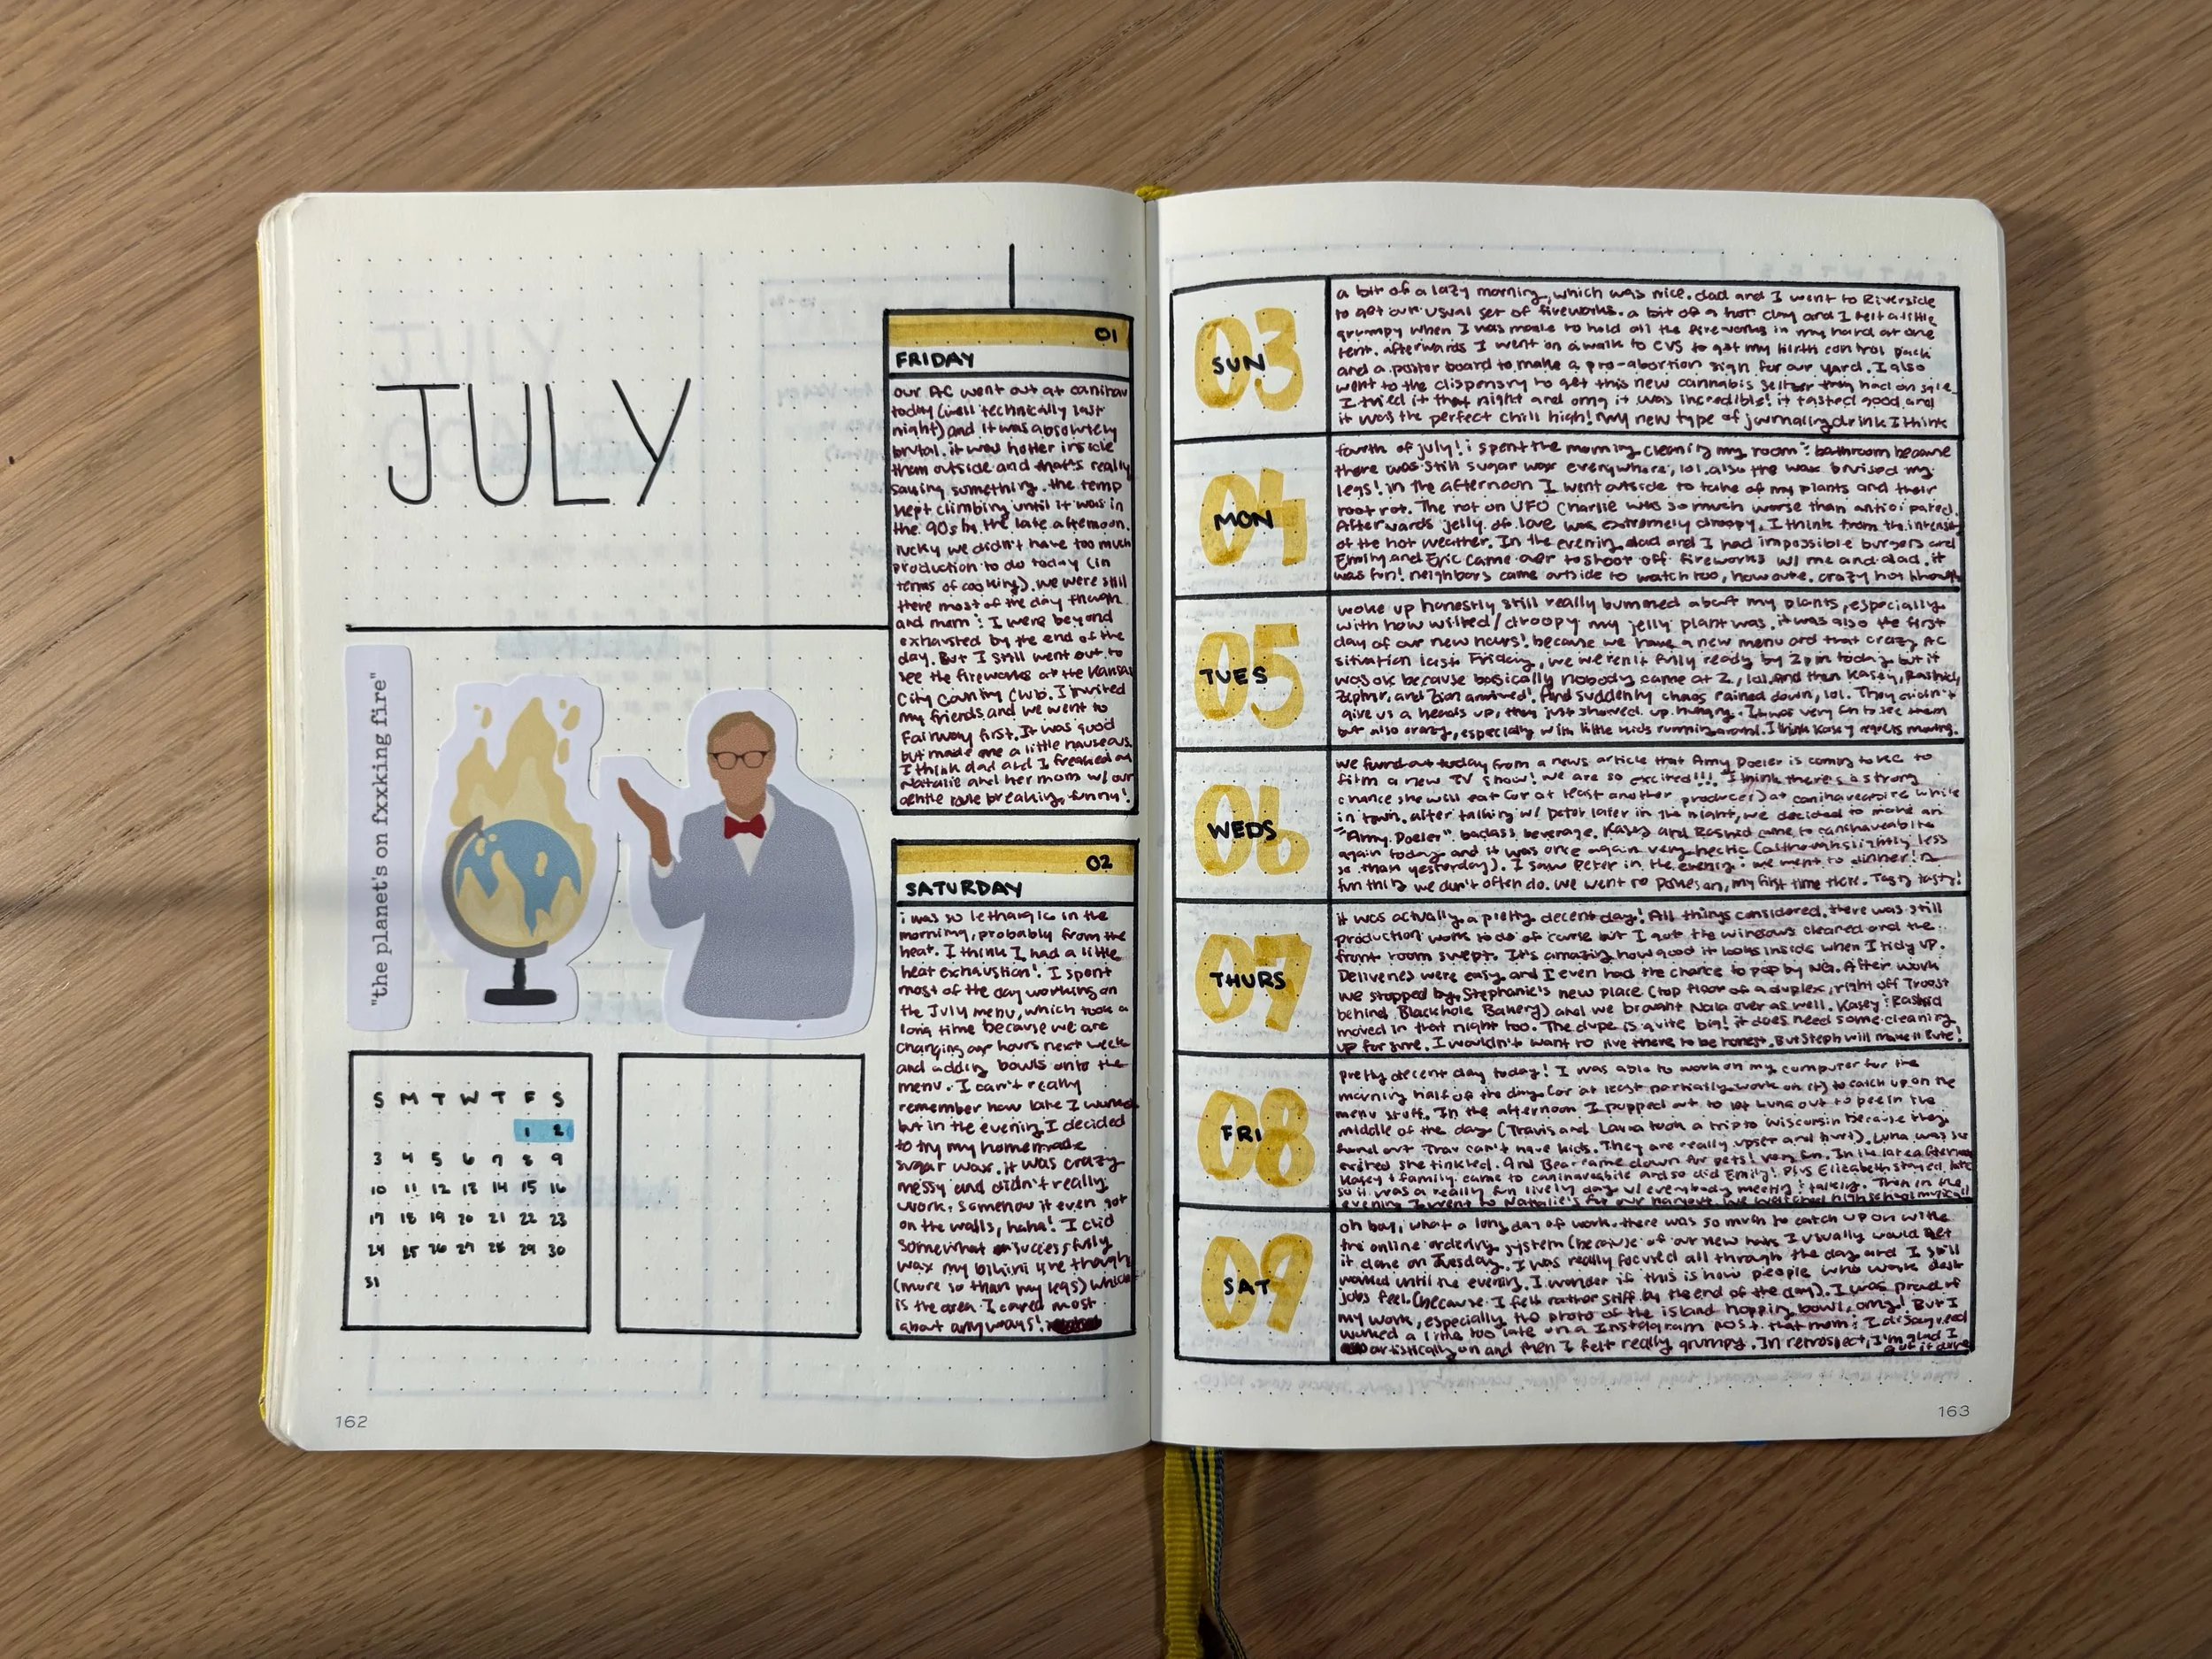 JULY
"the planet's on fxxking fire"
S M T W T F S
1 2
3 4 5 6 7 8 9
10 11 12 13 14 15 16
17 18 19 20 21 22 23
24 25 26 27 28 29 30
31
162
01
FRIDAY
our AC went out at canihav
today (well technically last
night) and it was absolutely
brutal. it was hotter inside
than outside and that's really
saying something. the temp
kept climbing until it was in
the 90s by the late afternoon.
lucky we didn't have too much
production to do today (in
terms of cooking). we were still
there most of the day though
and mom : I were beyond
exhausted by the end of the
day. But I still went out to
see the fireworks at the Kansas
City Country Club. I invited
my friends and we went to
Fairway first. It was good
but made me a little nauseous.
I think dad and I freaked out
Natalie and her mom w/ our
gentle rule breaking, funny!
02
SATURDAY
i was so lethargic in the
morning, probably from the
heat. I think I had a little
heat exhaustion! I spent
most of the day working on
the July menu, which took a
long time because we are
changing our hours next week
and adding bowls onto the
menu. I can't really
remember how late I worked
but in the evening I decided
to try my homemade
sugar wax. it was crazy
messy and didn't really
work. somehow it even got
on the walls, haha! I did
somewhat successfully
wax my bikini line though
(more so than my legs) which
is the area I cared most
about anyways!
03
SUN
a bit of a lazy morning, which was nice. dad and I went to Riverside
to get our usual set of fireworks. a bit of a hot day and I felt a little
grumpy when I was made to hold all the fireworks in my hand at one
tent. afterwards I went on a walk to CVS to get my birth control pack
and a poster board to make a pro-abortion sign for our yard. I also
went to the dispensry to get this new cannabis seltzer they had on sale.
I tried it that night and omg it was incredible! it tasted good and
it was the perfect chill high! my new type of journaling drink I think
04
MON
fourth of july! i spent the morning cleaning my room : bathroom because
there was still sugar wax everywhere, lol. also the wax bruised my
legs! in the afternoon I went outside to take of my plants and their
root rot. The rot on UFO Charlie was so much worse than anticipated.
Afterwards jelly of love was extremely droopy. I think from the intensity
of the hot weather. In the evening dad and I had impossible burgers and
Emily and Eric came over to shoot off fireworks w/ me and dad. it
was fun! neighbors came outside to watch too, how cute. crazy hot though
05
TUES
woke up honestly still really bummed about my plants, especially
with how wilted/droopy my jelly plant was. it was also the first
day of our new hours! because we have a new menu and that crazy AC
situation last Friday, we weren't fully ready by 2pm today but it
was ok because basically nobody came at 2, lol. and then Kasey, Rashid,
Zephyr, and Zion arrived! And suddenly chaos rained down, lol. They didn't
give us a heads up, they just showed up hungry. It was very fun to see them
but also crazy, especially with little kids running around. I think Kasey regrets moving.
06
WEDS
we found out today from a news article that Amy Poeler is coming to KC to
film a new TV show! we are so excited!!! I think there's a strong
chance she will eat (or at least another producer) at canihaveabite while
in town. after talking w/ Peter later in the night, we decided to make an
"Amy Poeler" badass beverage. Kasey and Rashid came to canihaveabite
again today and it was once again very hectic (although slightly less
so than yesterday). I saw Peter in the evening : we went to dinner! a
fun thing we don't often do. we went to , my first time there. Tasty tasty!
07
THURS
it was actually a pretty decent day! All things considered. there was still
production work to do of course but I got the windows cleaned and the
front room swept. It's amazing how good it looks inside when I tidy up.
Deliveries were easy and I even had the chance to pop by NG. After work
we stopped by Stephanie's new place (top floor of a duplex, right off Troost
behind Blackhole Bakery) and we brought Nala over as well. Kasey : Rashid
moved in that night too. The dupe is quite big! it does need some cleaning
up for sure. I wouldn't want to live there to be honest. But Steph will make it cute!
08
FRI
pretty decent day today! I was able to work on my computer for the
morning half of the day (or at least partially work on it) to catch up on the
menu stuff. In the afternoon I popped out to let Luna out to pee in the
middle of the day (Travis and Laura took a trip to Wisconsin because they
found out Trav can't have kids. They are really upset and hurt). Luna was so
excited she tinkled. And Bear came down for pets! very fun. In the late afternoon
Kasey + family came to canihaveabite and so did Emily! Plus Elizabeth stayed late
so it was a really fun lively day w/ everybody meeting : talking. Then in the
evening I went to Natalie's for our hangout. we watched high school musical!
09
SAT
oh boy, what a long day of work. there was so much to catch up on with
the online ordering system (because of our new hours I usually would get
it done on Tuesday. I was really focused all through the day and I still
worked until the evening. I wonder if this is how people who work desk
jobs feel (because I felt rather stiff by the end of the day). I was proud of
my work, especially the photo of the island hopping bowl, omg! But I
worked a little too late on a Instagram post that mom : I disagreed
artistically on and then I felt really grumpy. In retrospect, I'm glad I
got it done
163